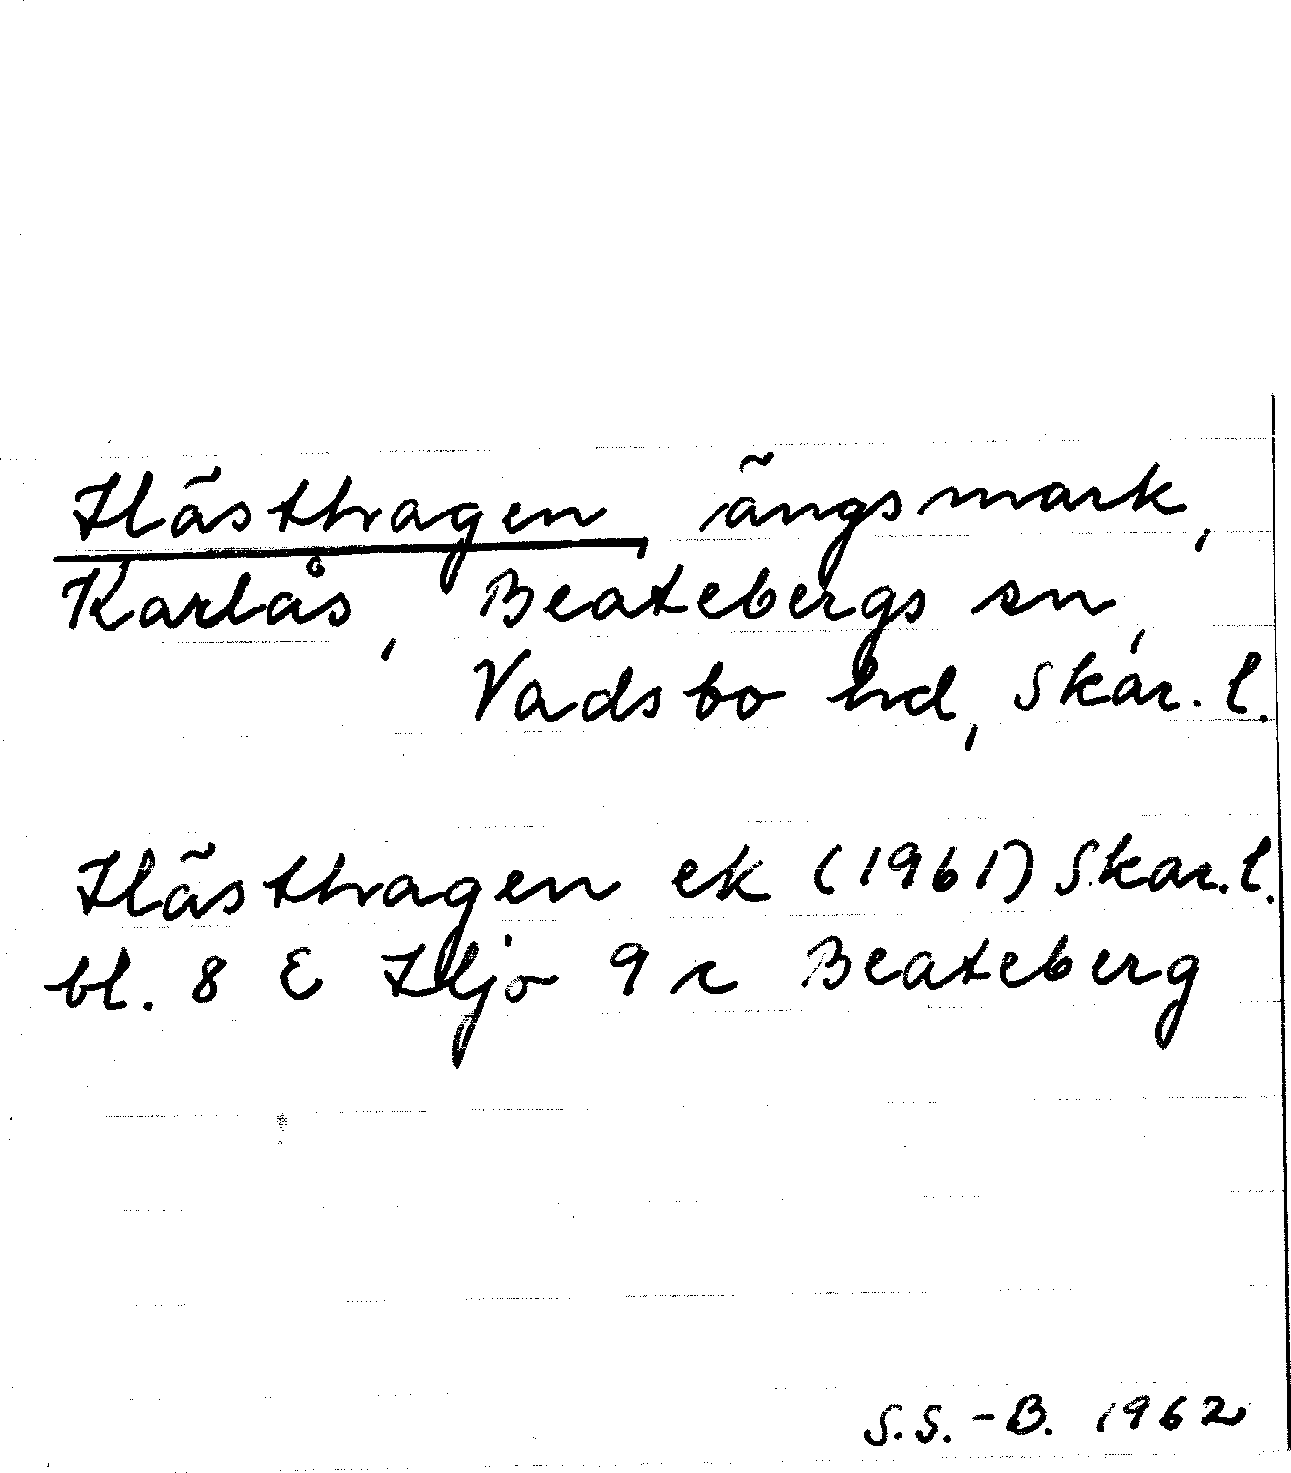 Hästhagen, ängsmark,
Karlås, Beatebergs sn,
Vadsbo hd, Skar. l.
Hästhagen ek (1961) Skar. l.
bl. 8 E Hjo 9 c Beateberg
S.S.-B. 1962